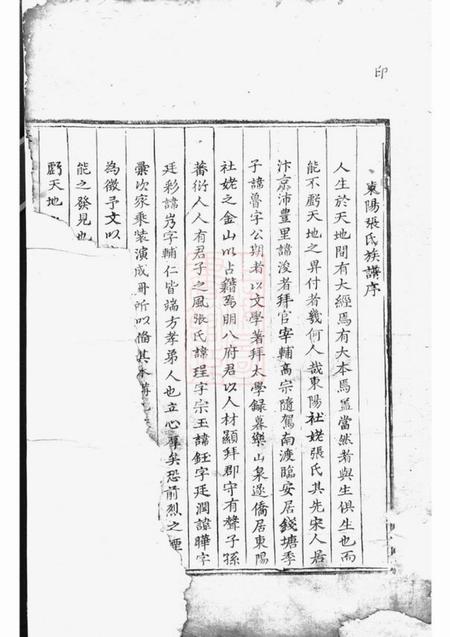 印
東陽張氏族譜序
人生於天地間有大經焉有大本焉蓋當然者與生俱生也而
能不虧天地之畀付者幾何人哉東陽社姥張氏其先宋人居
汴京沛豊里諱浚者拜官宰輔高宗隨駕南渡臨安居錢塘季
子諱魯字公期者以文學著拜太學錄慕樂山泉遂僑居東陽
社姥之金山以占籍焉朋八府君以人材顯拜郡守有聲子孫
蕃衍人人有君子之風張氏諱珵字宗玉諱鈺字廷潤諱曄字
廷彩諱岃字輔仁皆端方孝弟人也立心厚矣恐前烈之
彙次家乘裝演成冊所以俻其本
為徵予文以
能之發見也
虧天地